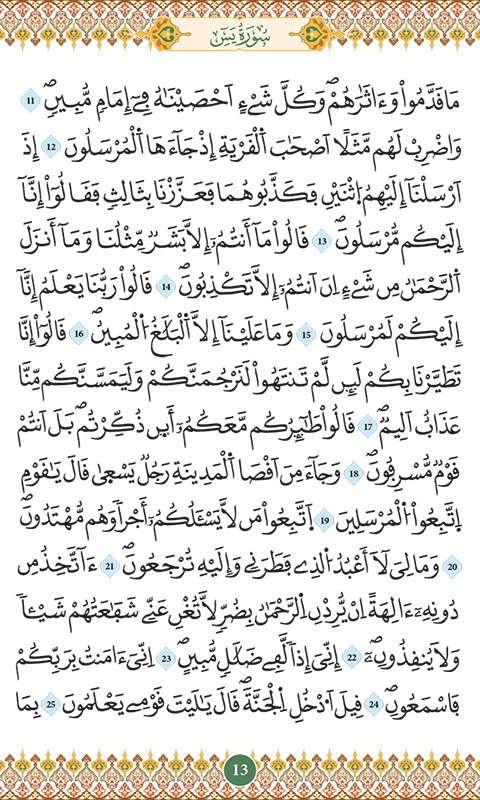 سُورَةُ يَسٓ
مَا قَدَّمُواْ وَءَاثَٰرَهُمْۖ وَكُلَّ شَےْءٍ اَحْصَيْنَٰهُ فِےٓ إِمَامٖ مُّبِينٖۖ 11
وَاضْرِبْ لَهُم مَّثَلًا اَصْحَٰبَ اَ۬لْقَرْيَةِ إِذْ جَآءَهَا اَ۬لْمُرْسَلُونَ 12 إِذَ
اَرْسَلْنَآ إِلَيْهِمُ اُ۪ثْنَيْنِ فَكَذَّبُوهُمَا فَعَزَّزْنَا بِثَالِثٖ فَقَالُوٓاْ إِنَّآ
إِلَيْكُم مُّرْسَلُونَۖ 13 قَالُواْ مَآ أَنتُمُۥٓ إِلَّا بَشَرٞ مِّثْلُنَا وَمَآ أَنزَلَ
اَ۬لرَّحْمَٰنُ مِن شَےْءٍ اِنَ اَنتُمُۥٓ إِلَّا تَكْذِبُونَۖ 14 قَالُواْ رَبُّنَا يَعْلَمُ إِنَّآ
إِلَيْكُمْ لَمُرْسَلُونَ 15 وَمَا عَلَيْنَآ إِلَّا اَ۬لْبَلَٰغُ اُ۬لْمُبِينُۖ 16 قَالُوٓاْ إِنَّا
تَطَيَّرْنَا بِكُمْ لَئِن لَّمْ تَنتَهُواْ لَنَرْجُمَنَّكُمْ وَلَيَمَسَّنَّكُم مِّنَّا
عَذَابٌ اَلِيمٞۖ 17 قَالُواْ طَٰٓئِرُكُم مَّعَكُمُۥٓ أَيْن ذُكِّرْتُمۖ بَلَ اَنتُمْ
قَوْمٞ مُّسْرِفُونَۖ 18 وَجَآءَ مِنَ اَقْصَا اَ۬لْمَدِينَةِ رَجُلٞ يَسْعَىٰ قَالَ يَٰقَوْمِ
اِ۪تَّبِعُواْ اُ۬لْمُرْسَلِينَ 19 اَ۪تَّبِعُواْ مَن لَّا يَسْـَٔلُكُمُۥٓ أَجْراٗ وَهُم مُّهْتَدُونَۖ
20 وَمَا لِيَ لَآ أَعْبُدُ اُ۬لذِے فَطَرَنِے وَإِلَيْهِ تُرْجَعُونَۖ 21 ءَآتَّخِذُ مِن
دُونِهِۦٓ ءَالِهَةً اِنْ يُّرِدْنِ اِ۬لرَّحْمَٰنُ بِضُرّٖ لَّا تُغْنِ عَنِّے شَفَٰعَتُهُمْ شَيْـٔاٗ
وَلَا يُنقِذُونِۦٓۖ 22 إِنِّيَ إِذاٗ لَّفِے ضَلَٰلٖ مُّبِينٍۖ 23 اِنِّيَ ءَامَنتُ بِرَبِّكُمْ
فَاسْمَعُونِۖ 24 قِيلَ اَ۟دْخُلِ اِ۬لْجَنَّةَۖ قَالَ يَٰلَيْتَ قَوْمِے يَعْلَمُونَ 25 بِمَا
13